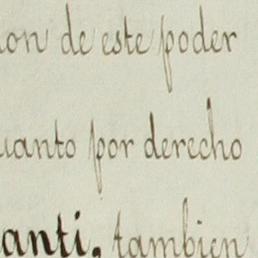 ion de este poder
uanto por derecho
anti, tambien